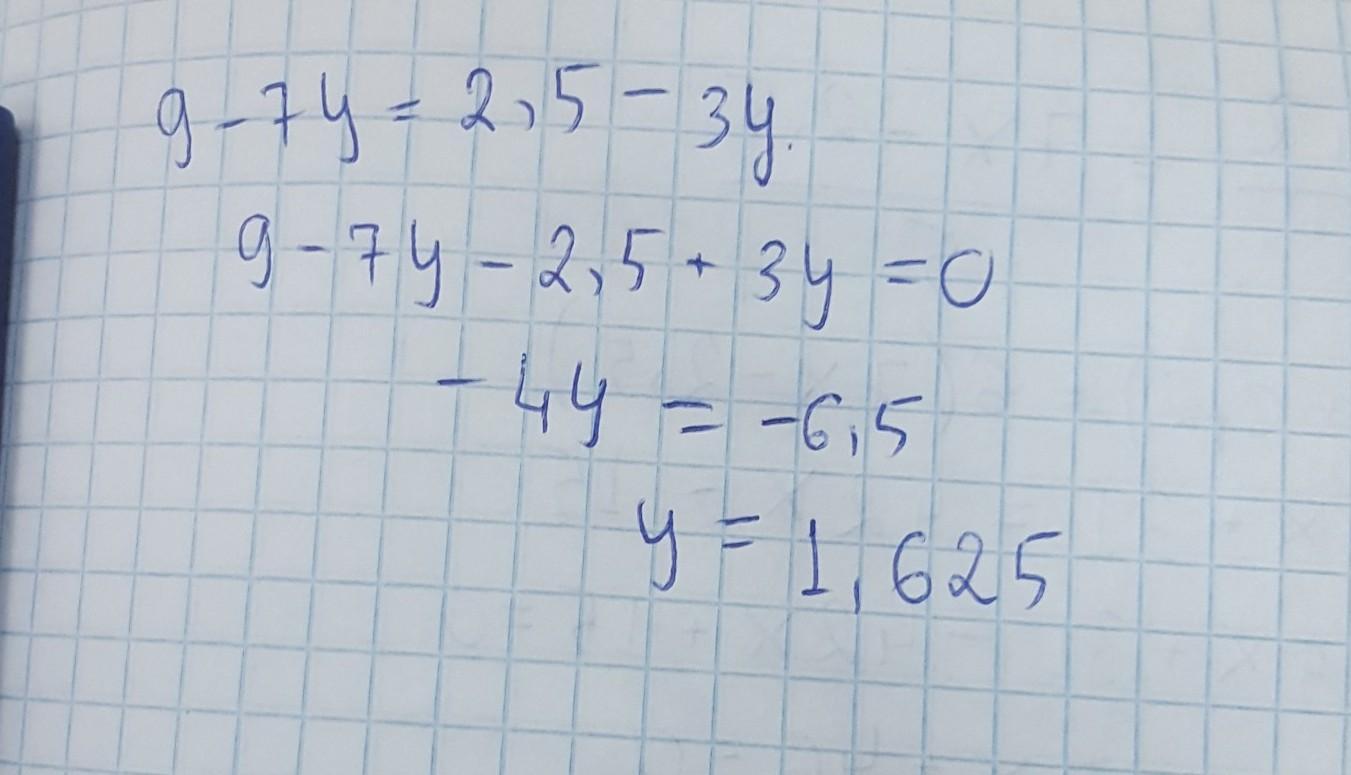 9 - 7y = 2,5 - 3y.
9 - 7y - 2,5 + 3y = 0
- 4y = -6,5
y = 1,625